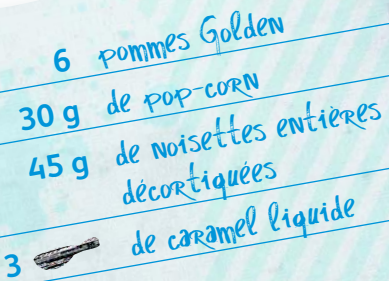 6 pommes Golden
30 g de pop-corn
45 g de noisettes entières
décortiquées
3 de caramel liquide